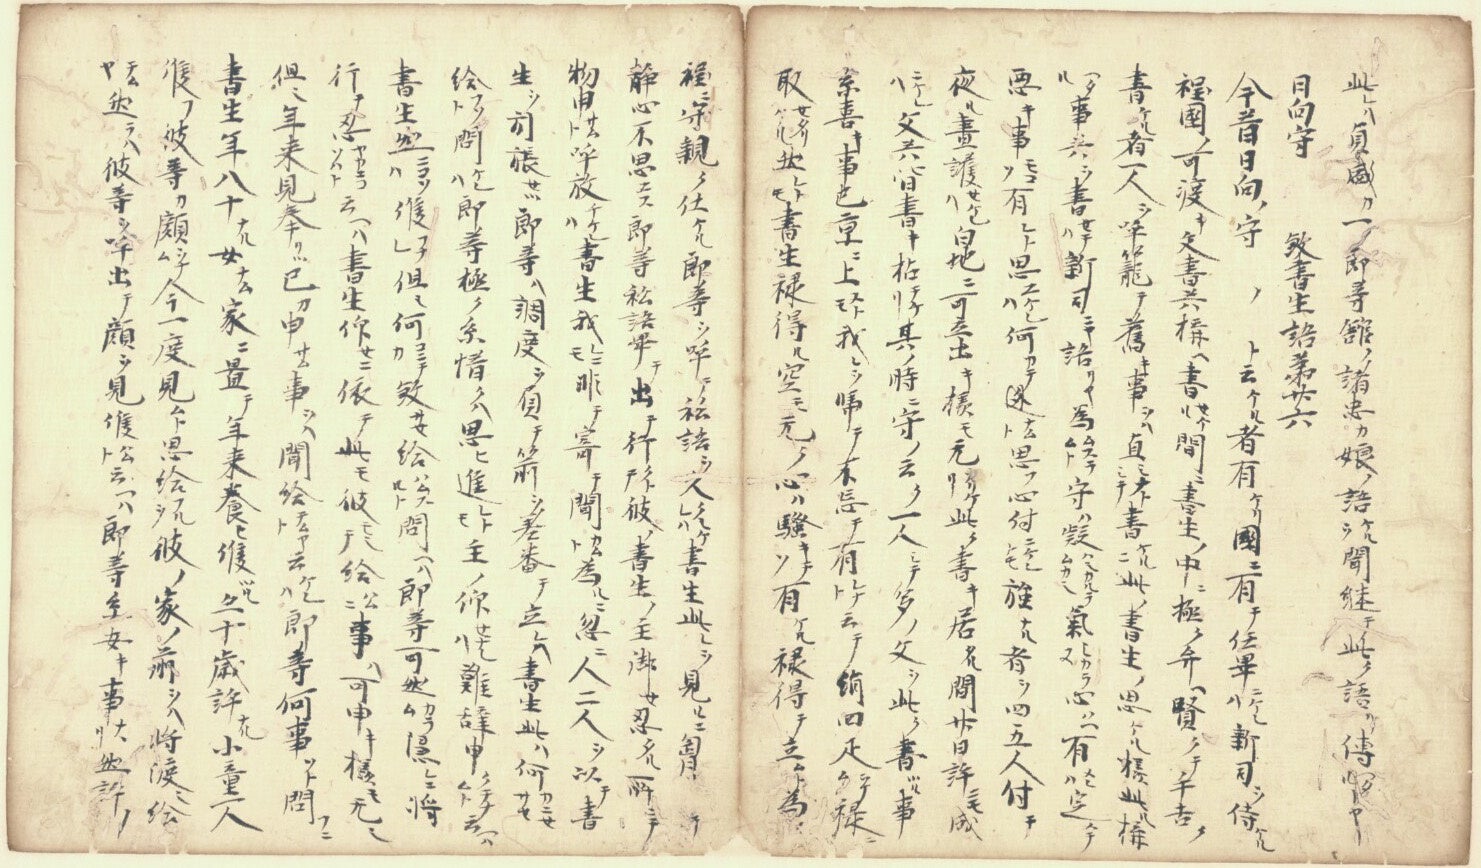 此レハ貞盛カ一ノ郎等舘ノ諸忠カ娘ノ語ケルヲ聞継テ此ク語リ傳ヘタルトヤ
日向守　　殺書生語第廿六
今昔日向ノ守　ノ　ト云ケル者有ケリ國ニ有テ任畢ニケレハ新司ヲ待ケル
程國ノ可渡キ文書共構ヘ書サセケル間ニ書生ノ中ニ極ク弁ヘ賢クテ手吉ク
書ケル者一人ヲ呼籠テ舊キ事ヲハ直シナトシテ書ケルニ此ノ書生ノ思ケル様此ル構
ヘタル事共ヲ書セテハ新司ニヤ語リヤ為ムスラムト守ハ疑ハムカシ氣シカラヌ心ハヘ有メレハ定テ
悪キ事ソ有ナムト思エケレハ何カテ逃ナムト思フ心付ニケレトモ強ナル者ヲ四五人付テ
夜ル晝護セケレハ白地ニ可立出キ様モ元カリケリ此ク書キ居タル間廿日許ニモ成
ニケレハ文共皆書キ拈テケリ其ノ時ニ守ノ云ク一人シテ多ノ文ヲ此ク書ツル事
糸喜キ事也京ニ上ヌトモ我レヲ憑テ不忘テ有レナト云テ絹四疋ナム禄ニ
取セタリケル然レトモ書生禄得ル空モ元ク心ハ騒キテソ有ケル禄得テ立ムト為ル
程ニ守親ク仕ケル郎等ヲ呼テ私語ヲ久クシケレハ書生此レヲ見ルニ胸ツフレテ
静心不思エス郎等私語畢テ出テ行トテ彼ノ書生ノ主御セ忍タル所ニテ
物申サムト呼放チケレハ書生我レニモ非テ寄テ聞カムト為ルニ忽ニ人二人ヲ以テ書
生ヲ引張セツ郎等ハ調度ヲ負テ箭ヲ差番テ立レハ書生此ハ何カニセサセ
給フソト問ケレハ郎等極ク糸惜クハ思ヒ進レトモ主ノ仰セナレハ難辞申クテナムト云ヘハ
書生然ニコソハ候フナレ但シ何コニテカ殺サセ給ハムスルト問ヘハ郎等可然カラム隠ニ将
行テ忍ヤカニコソハト云ヘハ書生仰セニ依テ此モ彼モシテ給ハムニ事ハ可申キ様モ元シ
但シ年来見奉リツ己カ申サム事ヲハ聞給テムヤト云ケレハ郎等何事ソト問フニ
書生年八十ナル女ナム家ニ置テ年来養ヒ候ツル又十歳許ナル小童一人
候フ彼等カ顔ナム今一度見ムト思給フルヲ彼ノ家ノ前ヲハ将渡シ給
テムヤ然ラハ彼等ヲ呼出テ顔ヲ見候ハムト云ヘハ郎等糸安キ事ナリ然許ノ